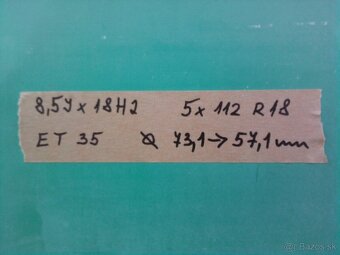 8,5J x 18H2 5 x 112 R18
ET 35 Ø 73,1→57,1 mm
© Bazos.sk